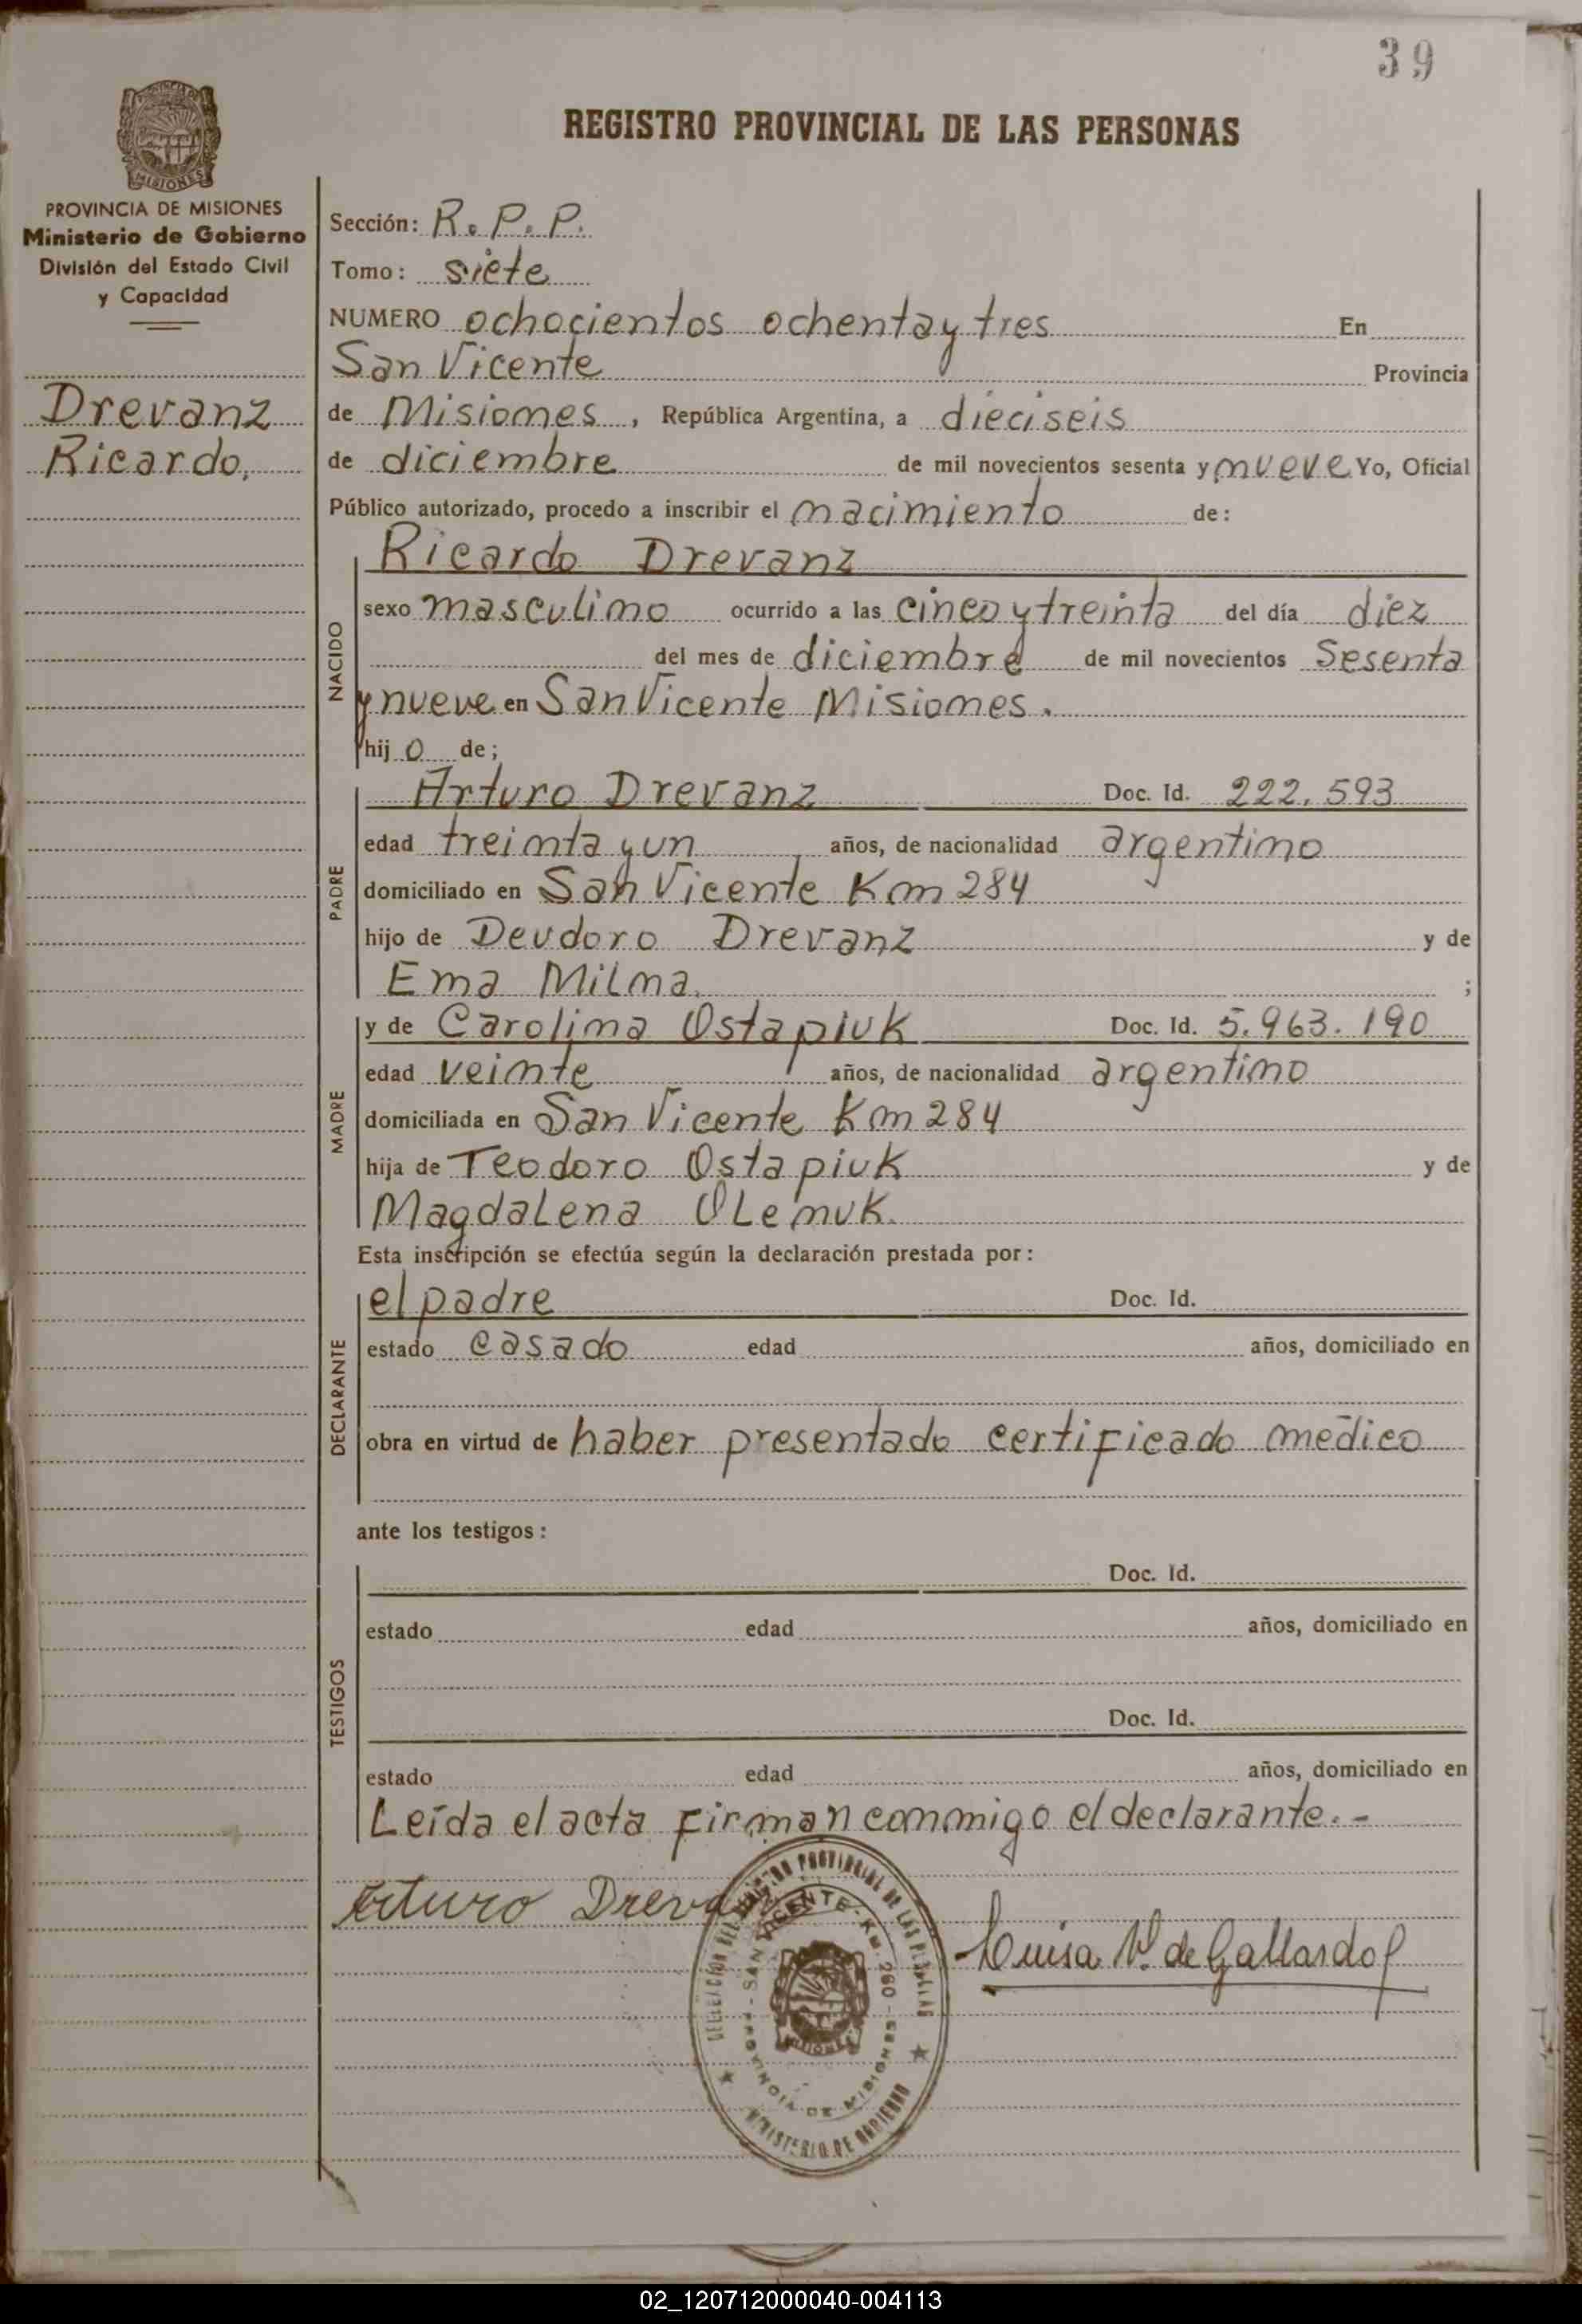 39
REGISTRO PROVINCIAL DE LAS PERSONAS
MISIONES
PROVINCIA DE MISIONES
Ministerio de Gobierno
División del Estado Civil
y Capacidad
Drevanz
Ricardo,
Sección: R. P. P.
Tomo: siete
NUMERO ochocientos ochenta y tres En
San Vicente Provincia
de Misiones, República Argentina, a dieciseis
de diciembre de mil novecientos sesenta y nueve Yo, Oficial
Público autorizado, procedo a inscribir el nacimiento de:
NACIDO
Ricardo Drevanz
sexo masculino ocurrido a las cinco y treinta del día diez
del mes de diciembre de mil novecientos Sesenta
y nueve en San Vicente Misiones.
hijo de;
PADRE
Arturo Drevanz Doc. Id. 222.593
edad treinta y un años, de nacionalidad argentino
domiciliado en San Vicente Km 284
hijo de Deudoro Drevanz y de
Ema Milma. ;
MADRE
y de Carolina Ostapiuk Doc. Id. 5.963.190
edad veinte años, de nacionalidad argentino
domiciliada en San Vicente Km 284
hija de Teodoro Ostapiuk y de
Magdalena Olenuk.
Esta inscripción se efectúa según la declaración prestada por:
DECLARANTE
el padre Doc. Id.
estado casado edad años, domiciliado en
obra en virtud de haber presentado certificado médico
ante los testigos:
TESTIGOS
Doc. Id.
estado edad años, domiciliado en
Doc. Id.
estado edad años, domiciliado en
Leída el acta firman conmigo el declarante.-
Arturo Drevanz
Luisa V. de Gallardo
DELEGACION DEL REGISTRO PROVINCIAL DE LAS PERSONAS
SAN VICENTE - Km. 260 -
PROVINCIA DE MISIONES
MINISTERIO DE GOBIERNO
02_120712000040-004113